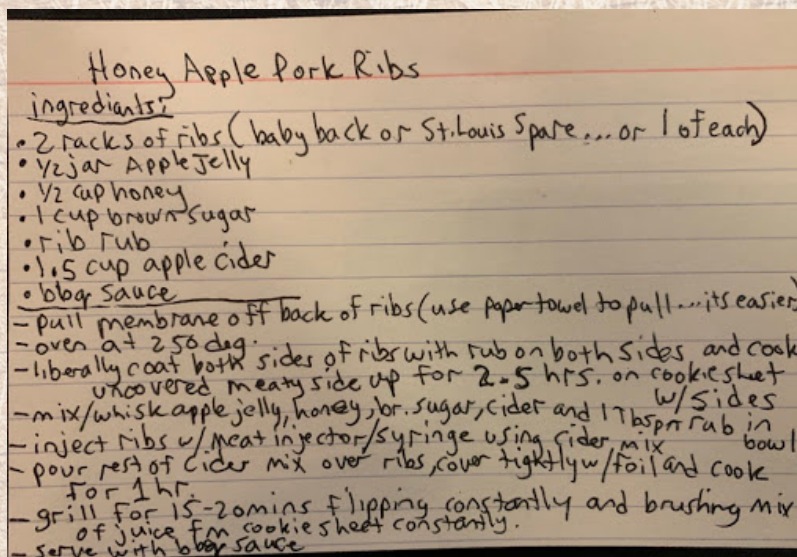 Honey Apple Pork Ribs
ingrediants:
• 2 racks of ribs (baby back or St. Louis Spare... or 1 of each)
• 1/2 jar Apple Jelly
• 1/2 cup honey
• 1 cup brown sugar
• rib rub
• 1.5 cup apple cider
• bbq sauce
- pull membrane off back of ribs (use paper towel to pull... its easier)
- oven at 250 deg.
- liberally coat both sides of ribs with rub on both sides and cook
uncovered meaty side up for 2.5 hrs. on cookie sheet
w/ sides
- mix/whisk apple jelly, honey, br. sugar, cider and 1 Tbspn rub in
bowl
- inject ribs w/ meat injector/syringe using cider mix
- pour rest of cider mix over ribs, cover tightly w/ foil and cook
for 1 hr.
- grill for 15-20 mins flipping constantly and brushing mix
of juice fm cookie sheet constantly.
- serve with bbq sauce